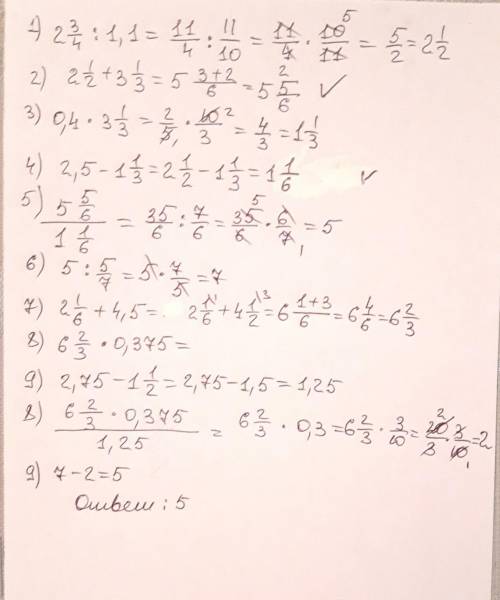 1) 2 3/4 : 1,1 = 11/4 : 11/10 = 11/4 · 10/11 5 = 5/2 = 2 1/2
2) 2 1/2 + 3 1/3 = 5 (3+2)/6 = 5 5/6 ✓
3) 0,4 · 3 1/3 = 2/5 1 · 10/3 2 = 4/3 = 1 1/3
4) 2,5 - 1 1/3 = 2 1/2 - 1 1/3 = 1 1/6 ✓
5) (5 5/6)/(1 1/6) = 35/6 : 7/6 = 35/6 5 · 6/7 1 = 5
6) 5 : 5/7 = 5 · 7/5 = 7
7) 2 1/6 + 4,5 = 2 1/6 + 4 1/2 3 = 6 (1+3)/6 = 6 4/6 = 6 2/3
8) 6 2/3 · 0,375 =
9) 2,75 - 1 1/2 = 2,75 - 1,5 = 1,25
8) (6 2/3 · 0,375)/1,25 = 6 2/3 · 0,3 = 6 2/3 · 3/10 = 20/3 2 · 3/10 1 = 2
9) 7 - 2 = 5
Ответ: 5